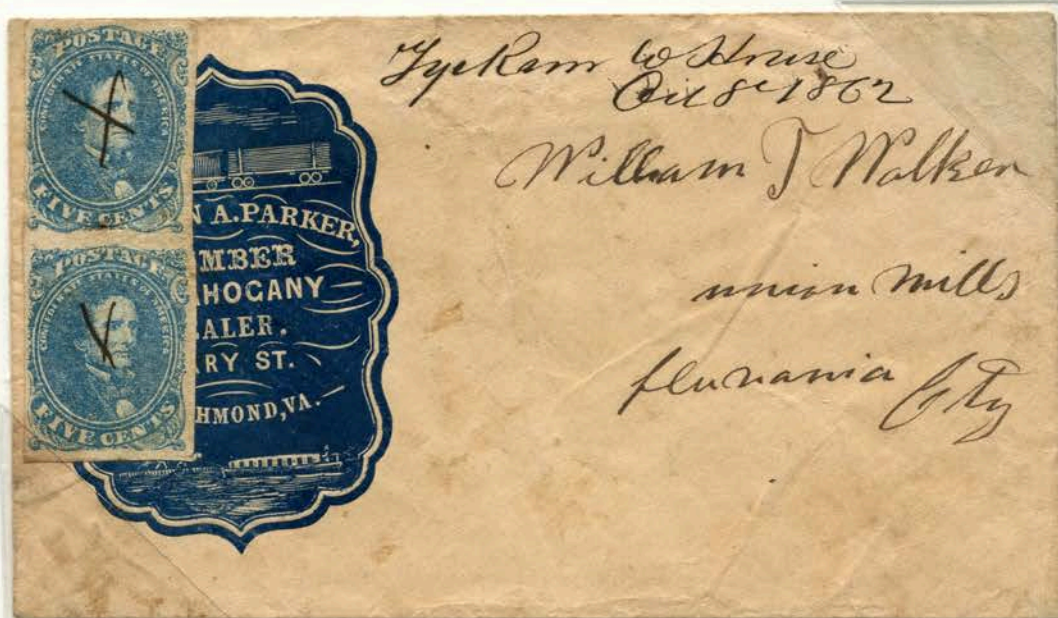 POSTAGE
CONFEDERATE STATES OF AMERICA
FIVE CENTS
POSTAGE
CONFEDERATE STATES OF AMERICA
FIVE CENTS
N A. PARKER,
MBER
AHOGANY
ALER.
RY ST.
HMOND, VA.
Oct 8th 1862
William T Walker
union mills
fluvania Cty